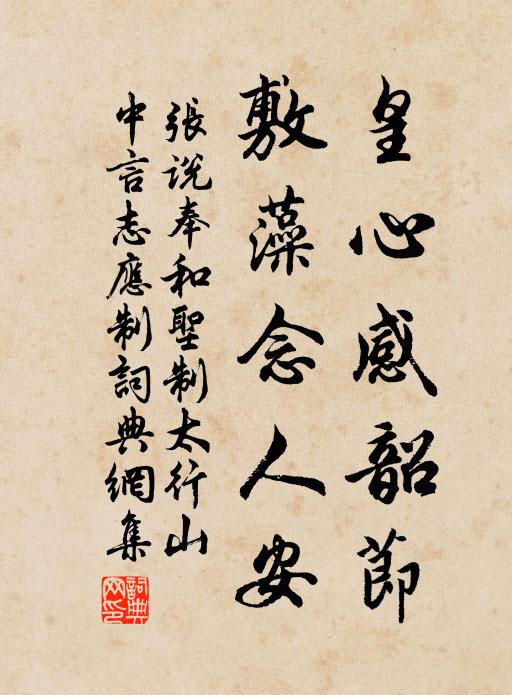 皇心感韶節
敷藻念人安
張説奉和聖制太行山
中言志應制詞典網集
詞典網印